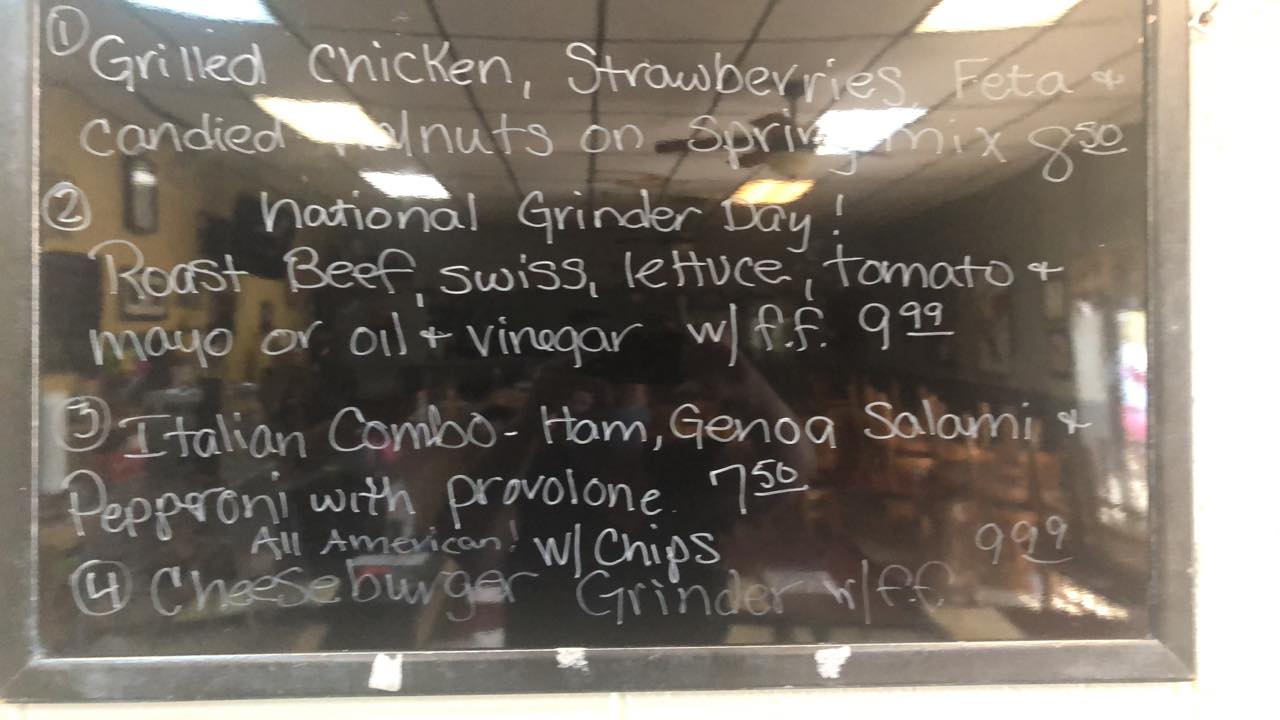 ① Grilled Chicken, Strawberries, Feta &
candied Walnuts on Spring mix 8 50
② National Grinder Day!
Roast Beef, swiss, lettuce, tomato &
mayo or oil & vinegar w/ f.f. 9 99
③ Italian Combo - Ham, Genoa Salami &
Pepperoni with provolone. 7 50
All American! w/ Chips
④ Cheeseburger Grinder w/ f.f. 9 99